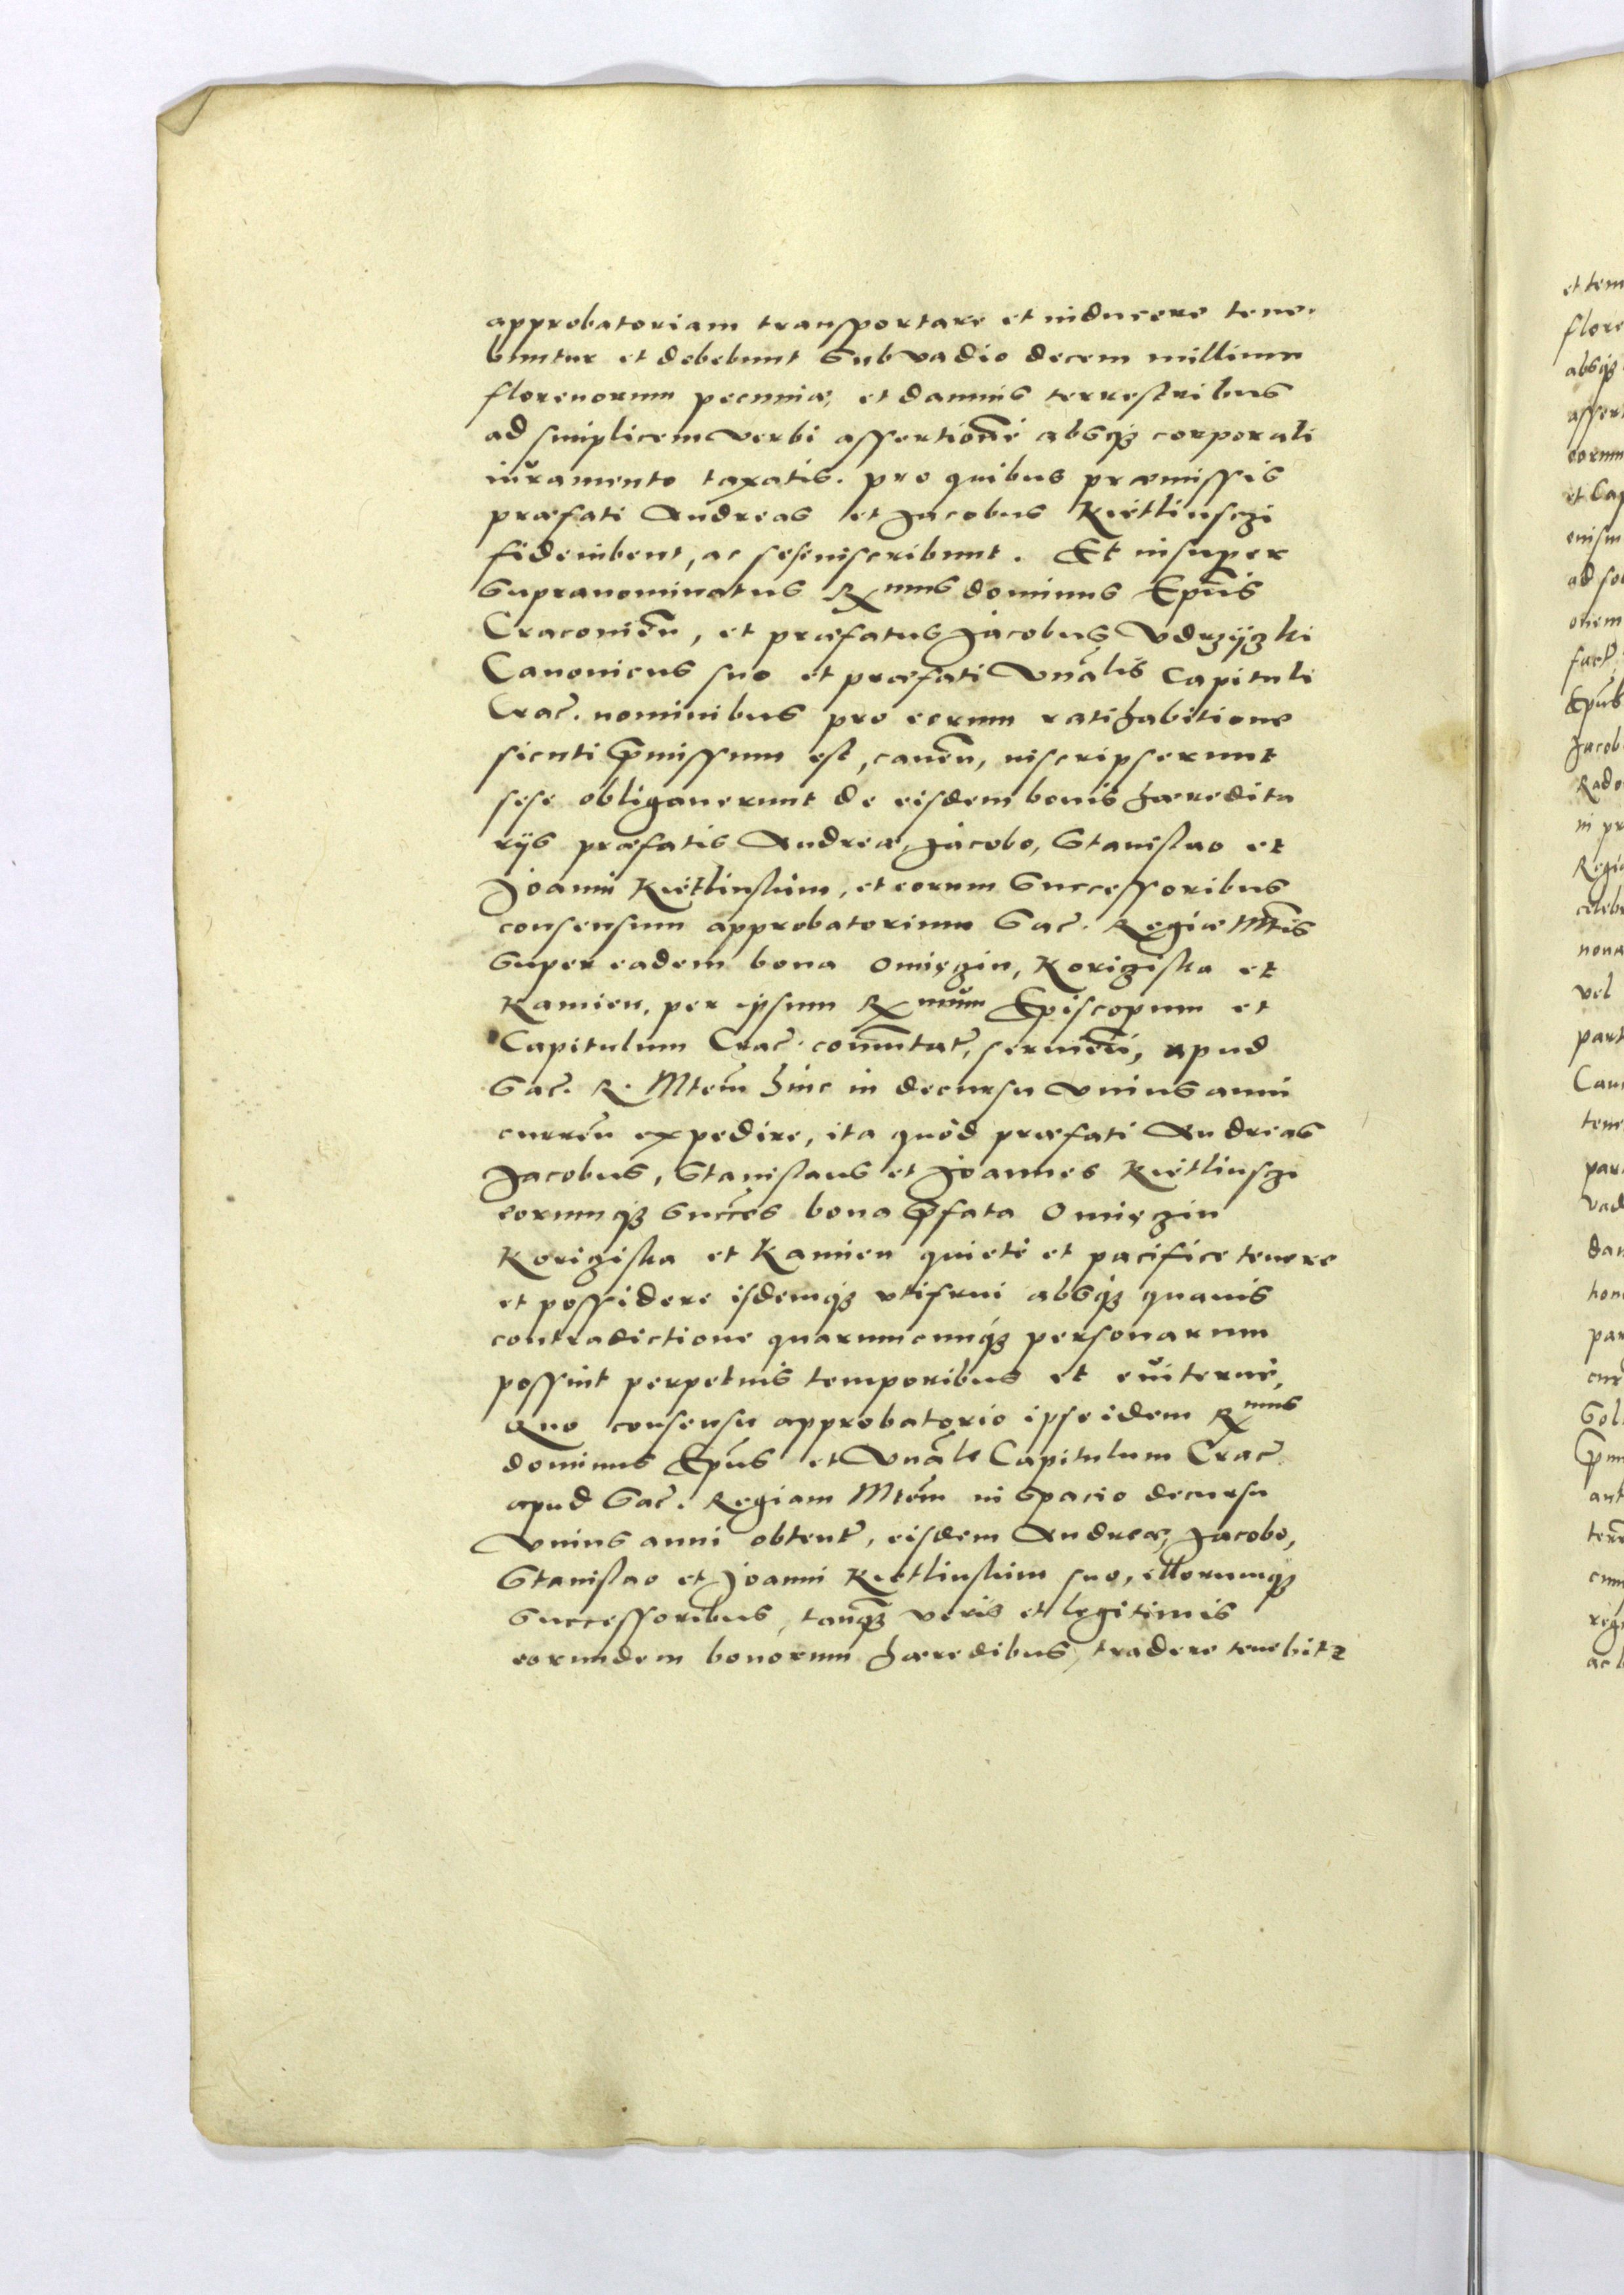 approbatoriam transportare et inducere tene-
buntur et debebunt sub vadio decem millium
florenorum pecuniæ, et damnis terrestribus
ad simplicem verbi assertionē absq3 corporali
iuramento taxatis. pro quibus præmissis
præfati Andreas et Jacobus Kietlinsczi
fideiubent, ac sese inscribunt. Et insuper
supranominatus Rmus dominus Epūs
Cracovień, et præfatus Jacobus Vdrzijczki
Canonicus suo et præfati Vnālis Capituli
Crać. nominibus pro eorum ratihabitione
sicuti p̄missum est, caveń, inscripserunt
sese obligaverunt de eisdem bonis hæredita
rijs præfatis Andreæ, Jacobo, Stanislao et
Joanni Kietlinskim, et eorum Successoribus
consensum approbatorium Sać. Regiæ Mtis
super eadem bona Omięczin, Koriziska et
Kamien, per ipsum Rmum Episcopum et
Capitulum Crać. commutať, servień, apud
Sać. R. Mtem hinc in decursu vnius anni
curreń expedire, ita quòd præfati Andreas
Jacobus, Stanislaus et Joannes Kietlinsczi
eorumq3 succēs bona p̄fata Omięczin
Koriziska et Kamien quietè et pacifice tenere
et possidere iisdemq3 vtifrui absq3 quavis
contradictione quarumcunq3 personarum
possint perpetuis temporibus et eviternè,
Quo consensu approbatorio ipse idem Rmus
dominus Epūs et Vnāle Capitulum Crać
apud Sać. Regiam Mtem in spacio decursu
vnius anni obtenť, eisdem Andreæ, Jacobo,
Stanislao et Joanni Kietlinskim suo, illorumq3
Successoribus, tanq3 veris et legitimis
eorundem bonorum hæredibus, tradere tenebitr